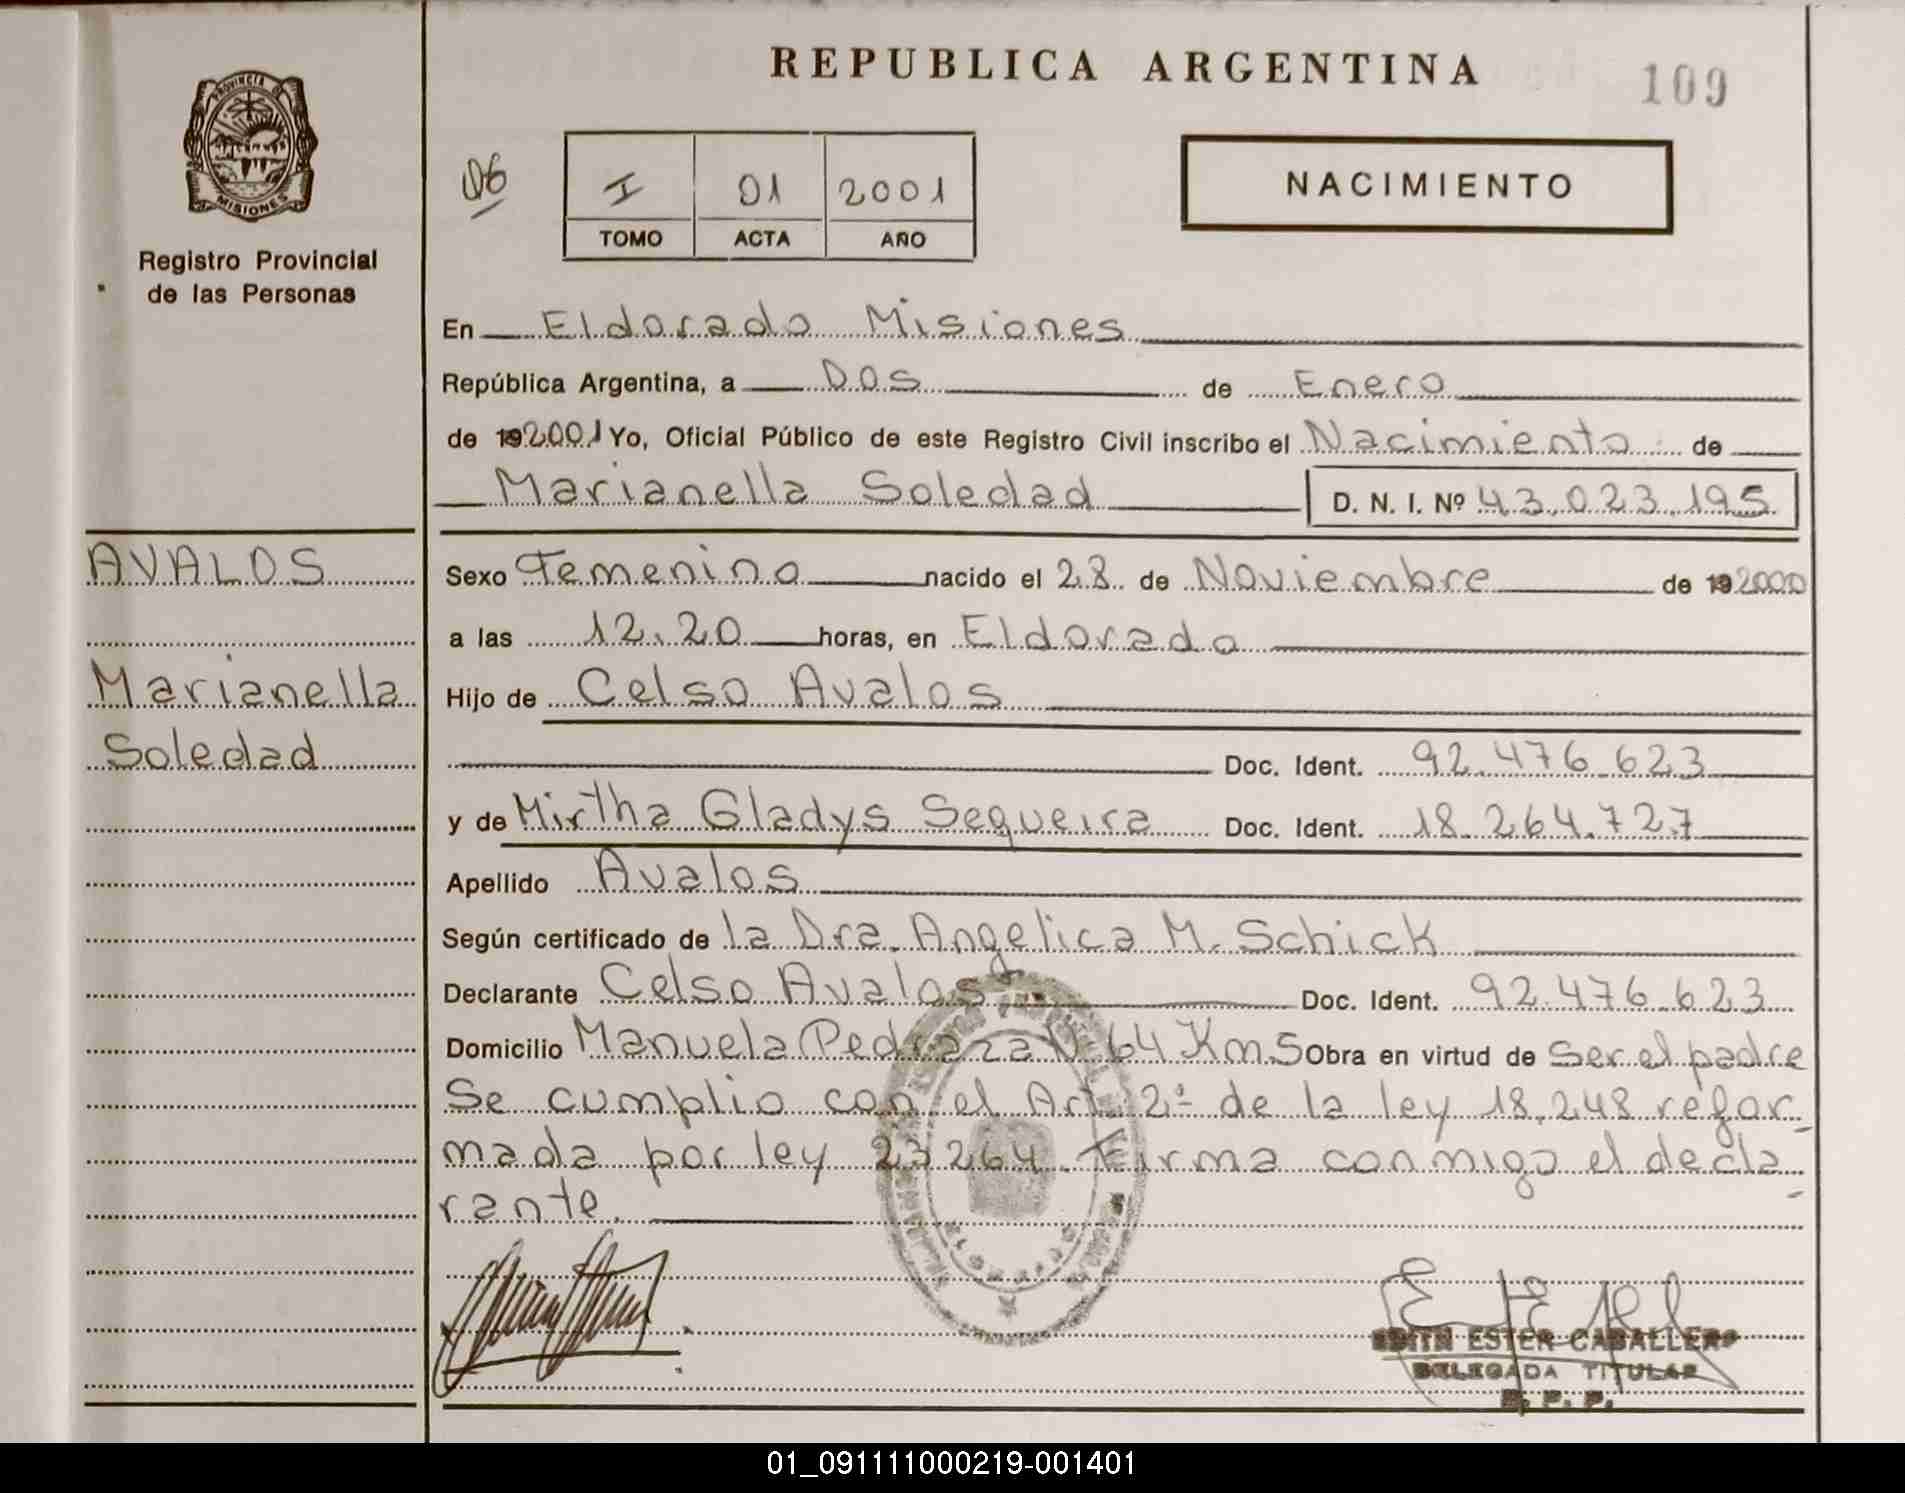 REPUBLICA ARGENTINA
109
PROVINCIA D
MISIONES
Registro Provincial
de las Personas
06
I 01 2001
TOMO ACTA AÑO
NACIMIENTO
En Eldorado Misiones
República Argentina, a Dos de Enero
de 192001 Yo, Oficial Público de este Registro Civil inscribo el Nacimiento de
Marianella Soledad D. N. I. Nº 43.023.195
AVALOS
Marianella
Soledad
Sexo Femenino nacido el 28 de Noviembre de 192000
a las 12.20 horas, en Eldorado
Hijo de Celso Avalos
Doc. Ident. 92.476.623
y de Mirtha Gladys Sequeira Doc. Ident. 18.264.727
Apellido Avalos
Según certificado de la Dra. Angelica M. Schick
Declarante Celso Avalos Doc. Ident. 92.476.623
Domicilio Manuela Pedraza Nº 64 Km5 Obra en virtud de Ser el padre
Se cumplio con el Art. 2º de la ley 18.248 refor
mada por ley 23264. Firma conmigo el decla
rante.
ELDORADO
EDITH ESTER CABALLERO
DELEGADA TITULAR
R. P. P.
01_091111000219-001401